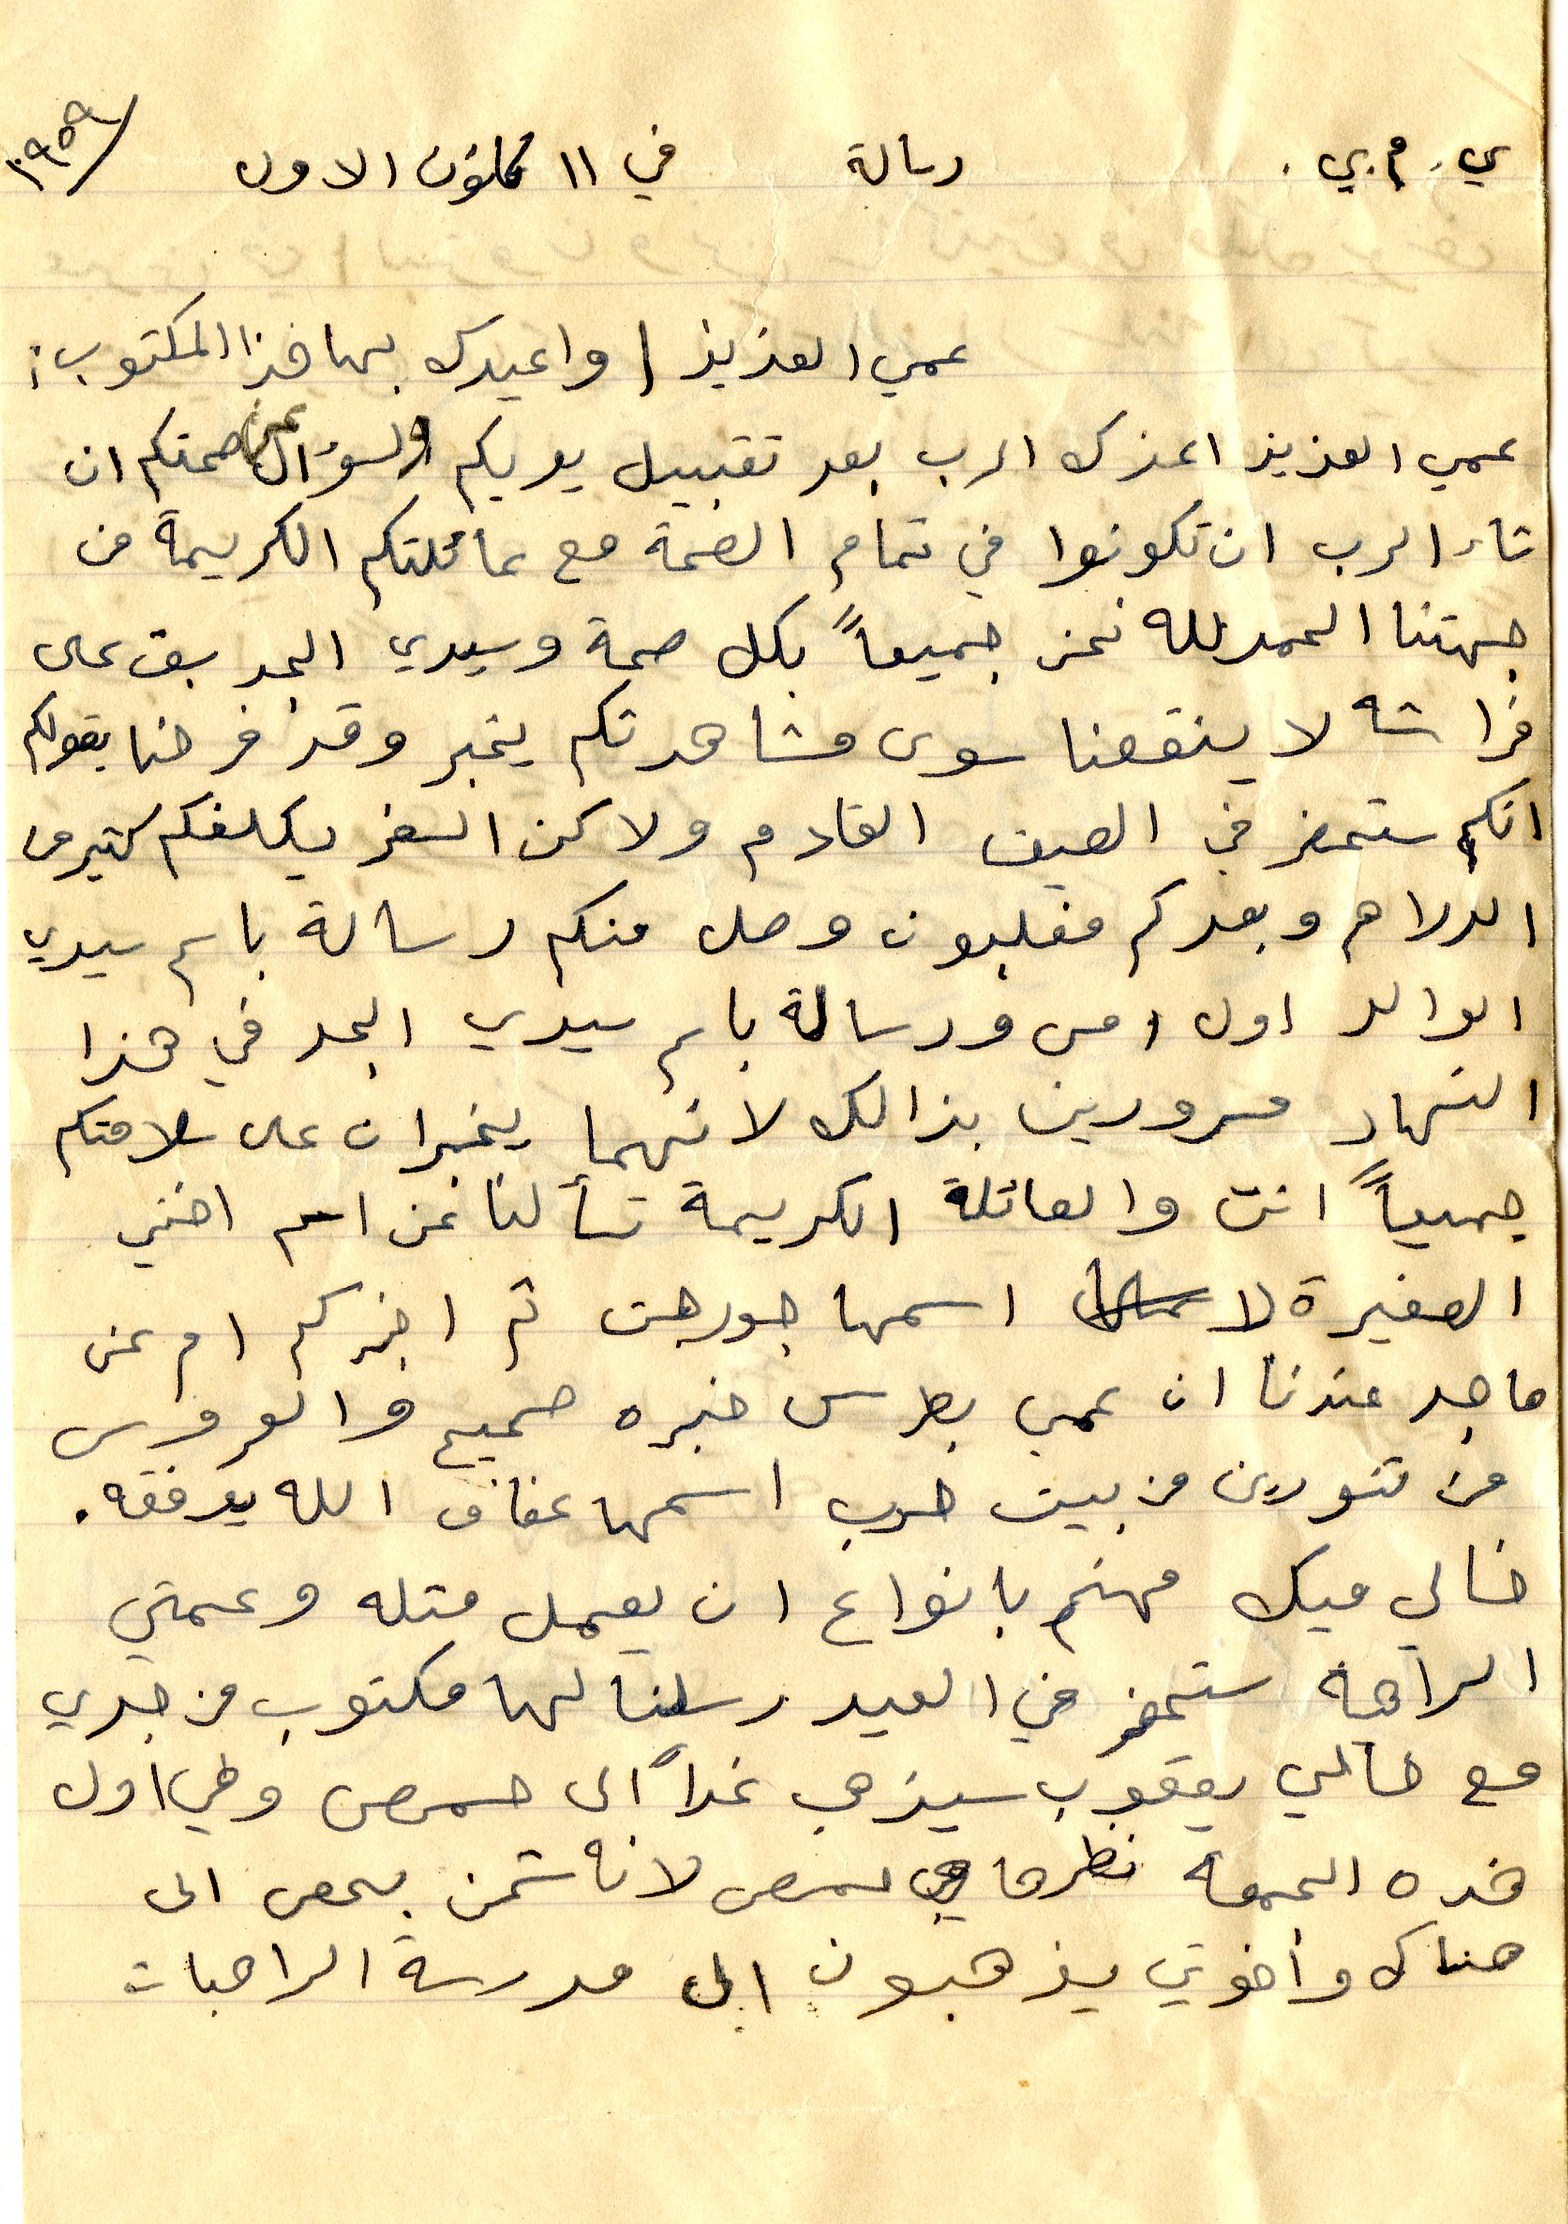 ي. م. ي. رسالة في ١١ كانون الاول ١٩٥٩
عمي العزيز / واعيدك بها هذا المكتوب:
عمي العزيز اعزك الرب بعد تقبيل يديكم والسؤال عن صحتكم ان
شاء الرب ان تكونوا في تمام الصحة مع عائلتكم الكريمة من
جهتنا الحمدلله نحن جميعاً بكل صحة وسيدي الجد بق على
فراشه لا ينقصنا سوى مشاهدتكم بخير وقد فرحنا بقولكم
انكم ستحضر في الصيف القادم ولاكن السفر يكلفكم كتير من
الدراهم وبعدكم مغلبون وصل منكم رسالة باسم سيدي
الوالد اول امس ورسالة باسم سيدي الجد في هذا
النهار مسرورين بذالك لانهما يخبران على سلامتكم
جميعاً انت والعائلة الكريمة تسألنا عن اسم اختي
الصغيرة اسمها جورجت ثم اخبركم ام عن
ما جد عندنا ان عمي بطرس خبره صحيح والعروس
من تنورين من بيت حرب اسمها عفاف الله يوفقه.
خالي ميك مهتم بانواع ان يعمل متله وعمتي
الراهبة ستحضر في العيد رسلنا لها مكتوب من جدي
مع خالي يعقوب سيذهب غداً الى حمص وهي اول
هذه الجمعة نطرها حمص لانه شحن بحص الى
هناك وأخوتي يذهبون الى مدرسة الراهبات